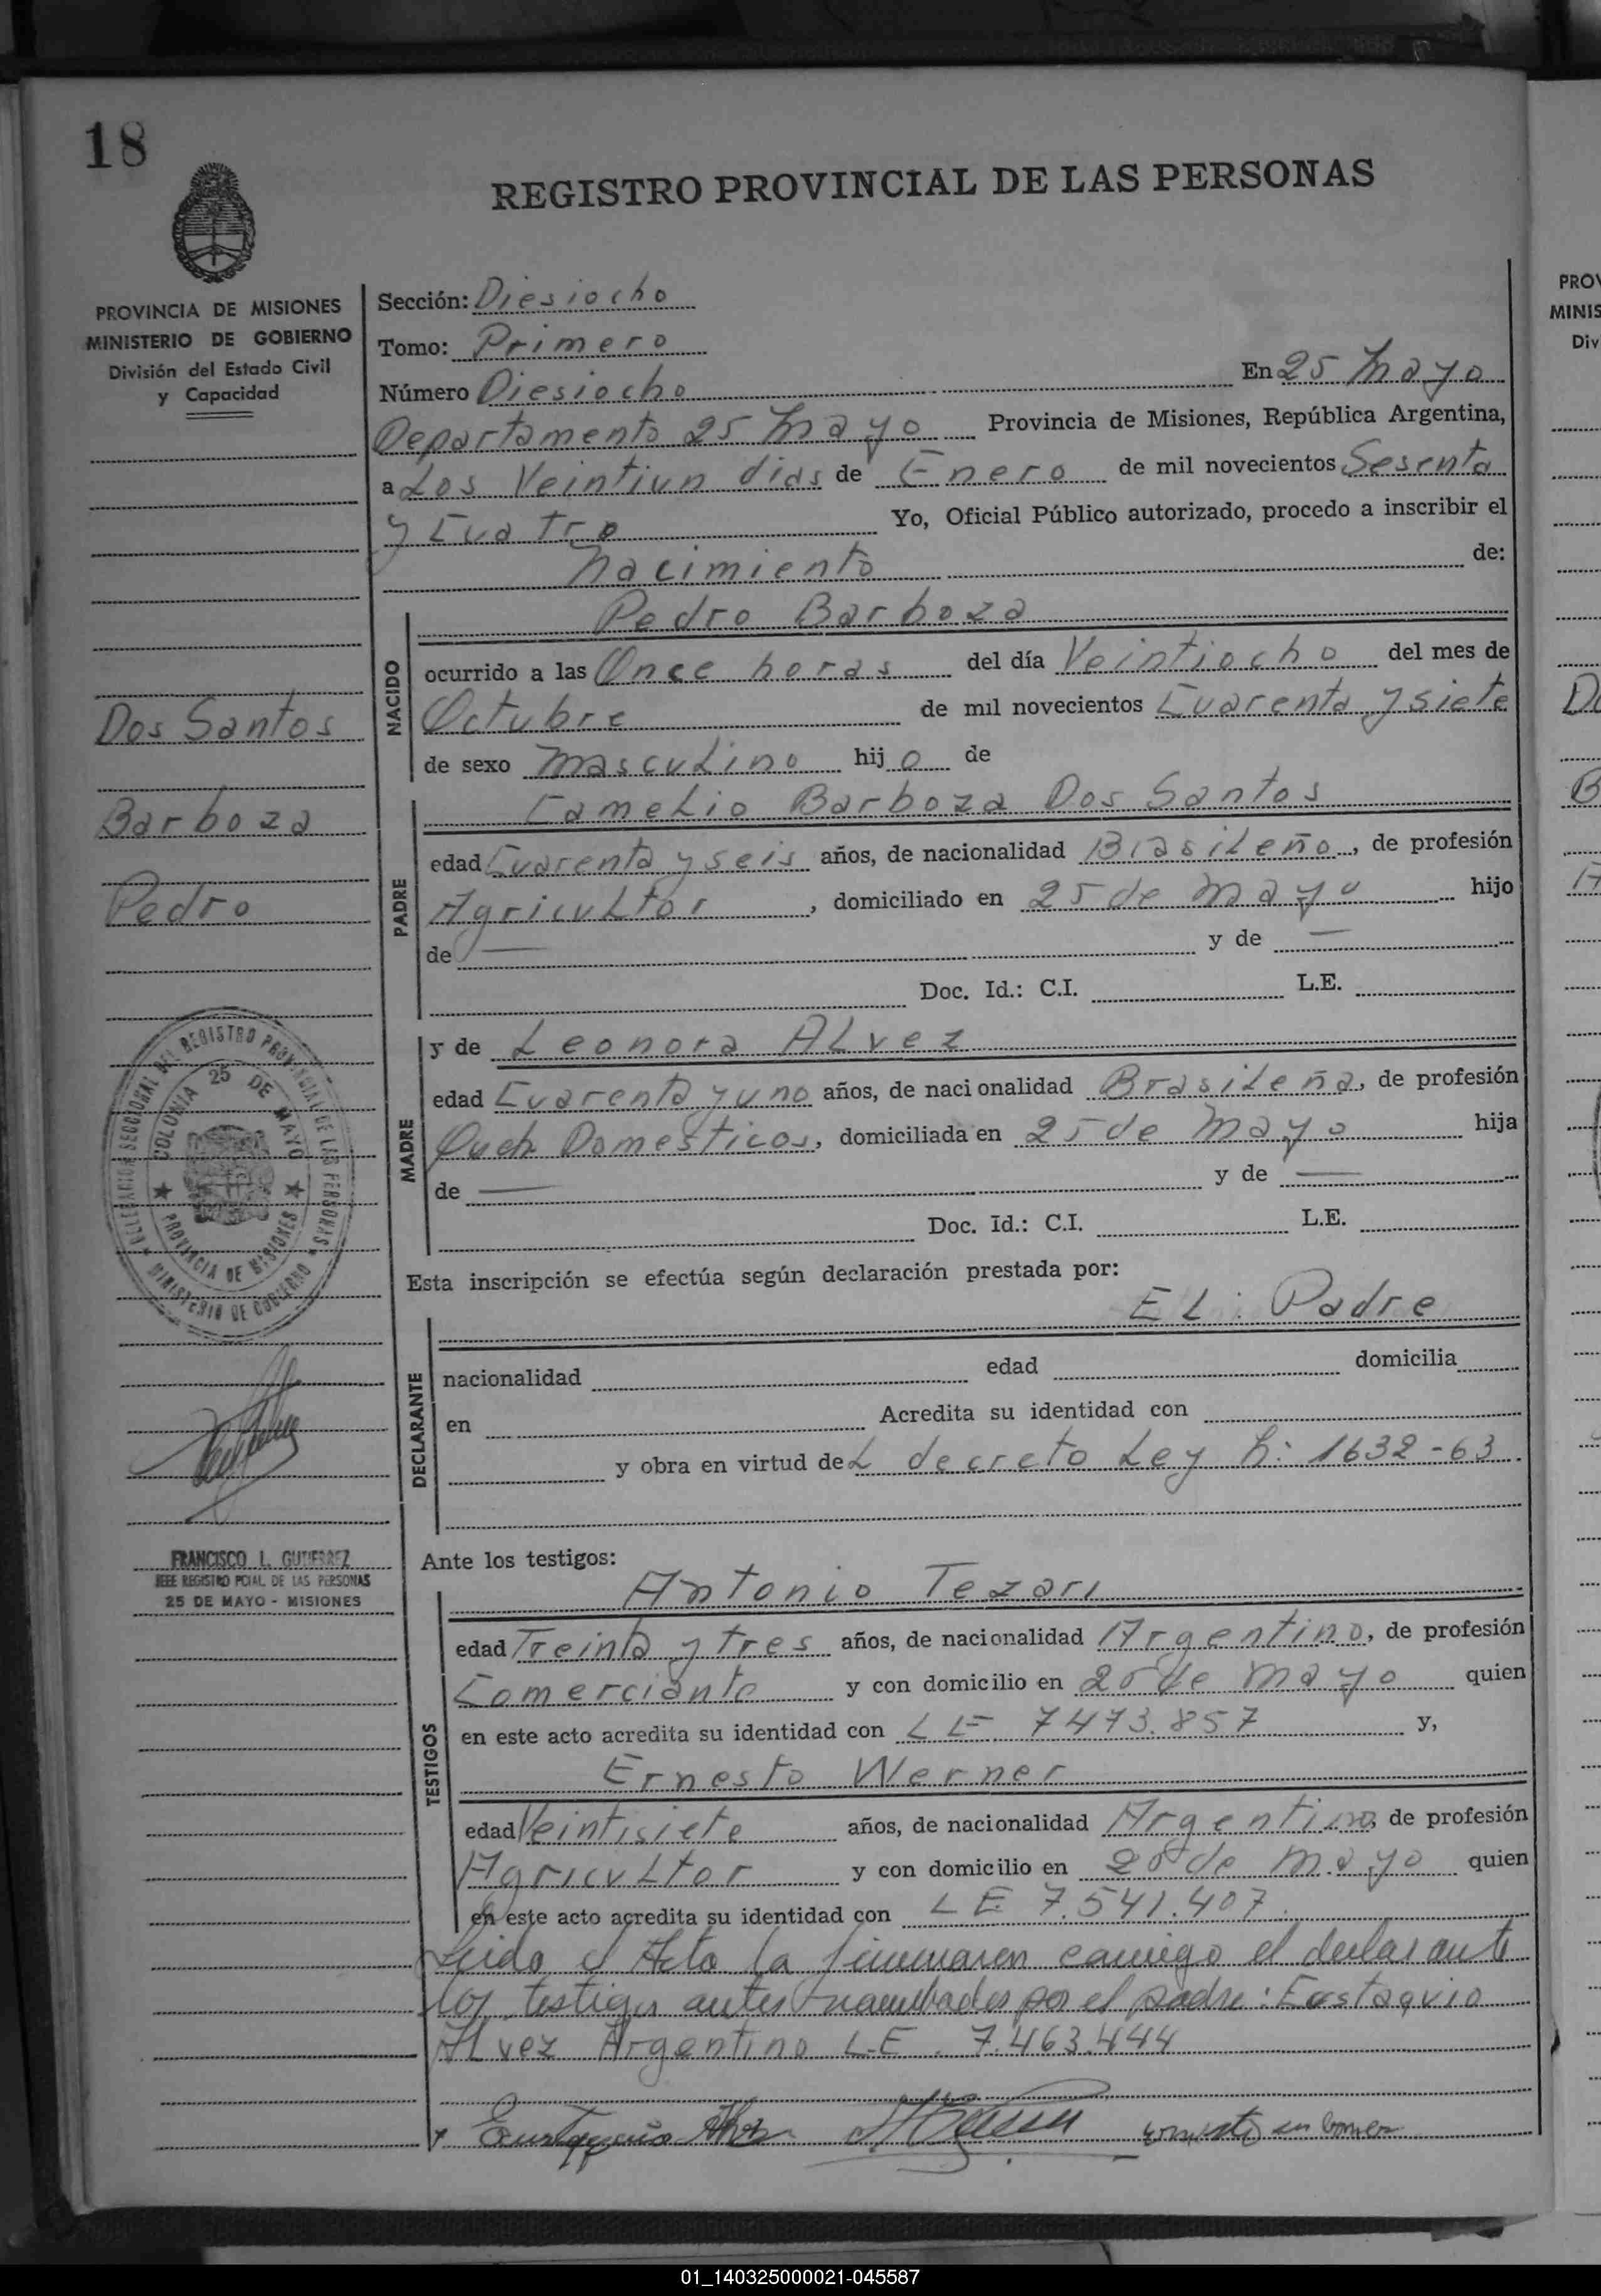 18
REGISTRO PROVINCIAL DE LAS PERSONAS
PROVINCIA DE MISIONES
MINISTERIO DE GOBIERNO
División del Estado Civil
y Capacidad
Sección: Diesiocho
Tomo: Primero
Número Diesiocho En 25 Mayo
Departamento 25 Mayo Provincia de Misiones, República Argentina,
a Los Veintiun dias de Enero de mil novecientos Sesenta
y Cuatro Yo, Oficial Público autorizado, procedo a inscribir el
Nacimiento de:
Dos Santos
Barboza
Pedro
NACIDO
Pedro Barboza
ocurrido a las Once horas del día Veintiocho del mes de
Octubre de mil novecientos Cuarenta y siete
de sexo Masculino hij o de
PADRE
Camelio Barboza Dos Santos
edad Cuarenta y seis años, de nacionalidad Brasileño, de profesión
Agricultor, domiciliado en 25 de Mayo hijo
de — y de —
Doc. Id.: C.I. L.E.
MADRE
y de Leonora Alvez
edad Cuarenta y uno años, de nacionalidad Brasileña, de profesión
Queh Domesticos, domiciliada en 25 de Mayo hija
de — y de —
Doc. Id.: C.I. L.E.
DELEGACION SECCIONAL DEL REGISTRO PROVINCIAL DE LAS PERSONAS
MINISTERIO DE GOBIERNO
COLONIA 25 DE MAYO
PROVINCIA DE MISIONES
Esta inscripción se efectúa según declaración prestada por:
DECLARANTE
EL: Padre
nacionalidad edad domicilia
en Acredita su identidad con
y obra en virtud de L decreto Ley N: 1632-63
FRANCISCO I. GUTIERREZ
JEFE REGISTRO PCIAL DE LAS PERSONAS
25 DE MAYO - MISIONES
Ante los testigos:
TESTIGOS
Antonio Tezari
edad Treinta y tres años, de nacionalidad Argentino, de profesión
Comerciante y con domicilio en 25 de Mayo quien
en este acto acredita su identidad con L E 7473.857 y,
Ernesto Werner
edad Veintisiete años, de nacionalidad Argentino, de profesión
Agricultor y con domicilio en 25 de Mayo quien
en este acto acredita su identidad con L E 7.541.407
Leida el Acta la firmaron conmigo el declarante
los testigos antes nombrados por el padre: Eustaquio
Alvez Argentino L.E. 7.463.444
Eustaquio Alvez
PROV
MINIS
Div
01_140325000021-045587